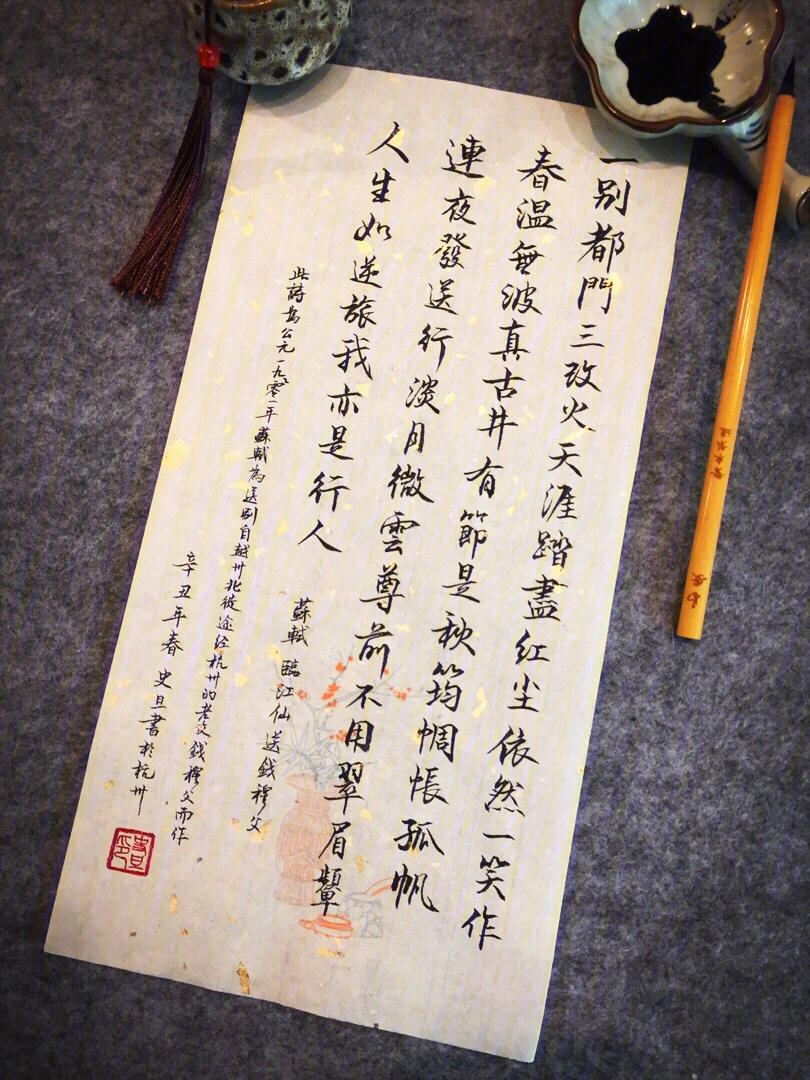 一别都門三改火天涯踏盡红尘依然一笑作
春温無波真古井有節是秋筠惆悵孤帆
連夜發送行淡月微雲尊前不用翠眉顰
人生如逆旅我亦是行人
蘇軾 臨江仙 送錢穆父
此詩為公元一九零一年蘇軾為送别自越州北徙途经杭州的老友錢穆父而作
辛丑年春 史旦書於杭州